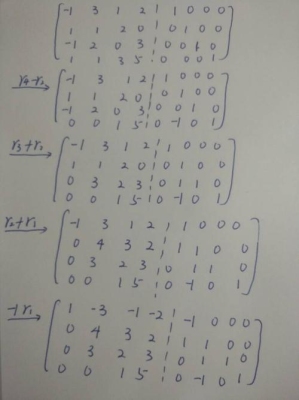 -1 3 1 2 1 0 0 0
1 1 2 0 0 1 0 0
-1 2 0 3 0 0 1 0
1 1 3 5 0 0 0 1
r4-r2 -1 3 1 2 1 0 0 0
1 1 2 0 0 1 0 0
-1 2 0 3 0 0 1 0
0 0 1 5 0 -1 0 1
r3+r2 -1 3 1 2 1 0 0 0
1 1 2 0 0 1 0 0
0 3 2 3 0 1 1 0
0 0 1 5 0 -1 0 1
r2+r1 -1 3 1 2 1 0 0 0
0 4 3 2 1 1 0 0
0 3 2 3 0 1 1 0
0 0 1 5 0 -1 0 1
-1r1 1 -3 -1 -2 -1 0 0 0
0 4 3 2 1 1 0 0
0 3 2 3 0 1 1 0
0 0 1 5 0 -1 0 1